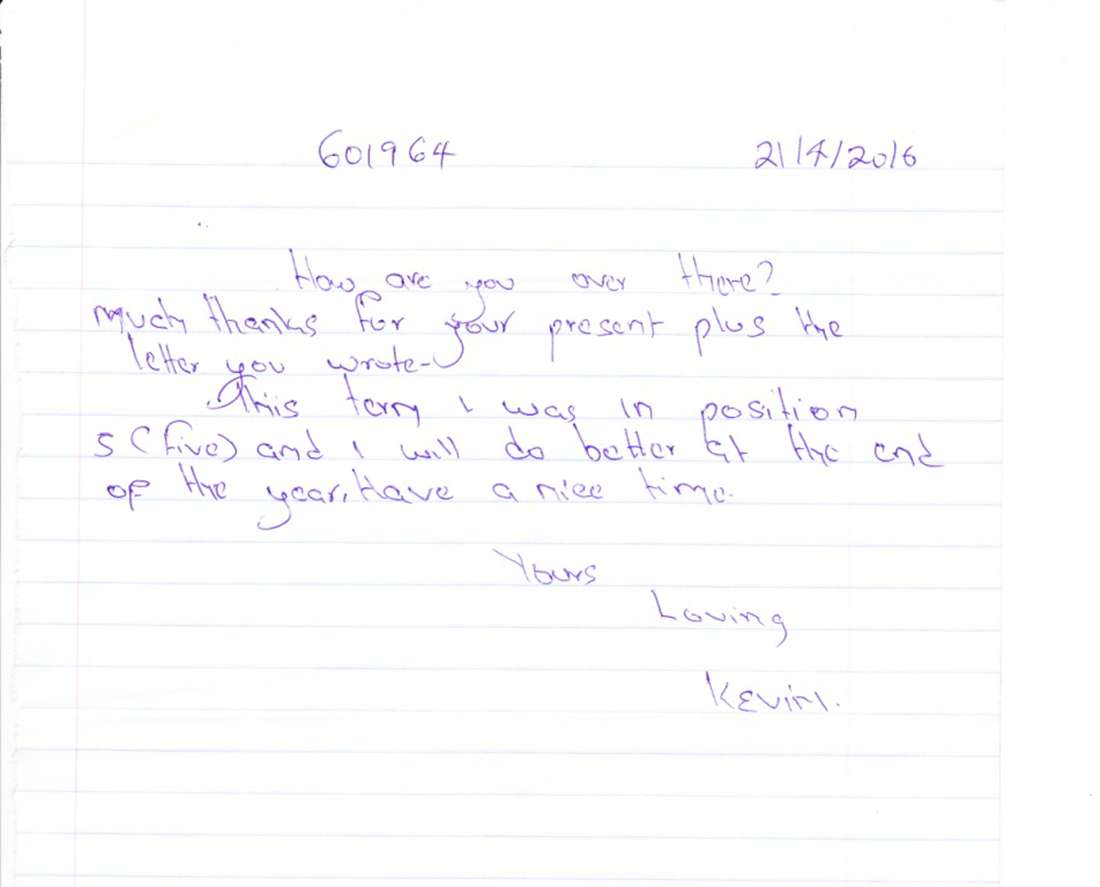 601964 21/4/2016
How are you over there?
much thanks for your present plus the
letter you wrote-
This term i was in position
5 (five) and i will do better at the end
of the year. Have a nice time.
Yours
Loving
Kevin.